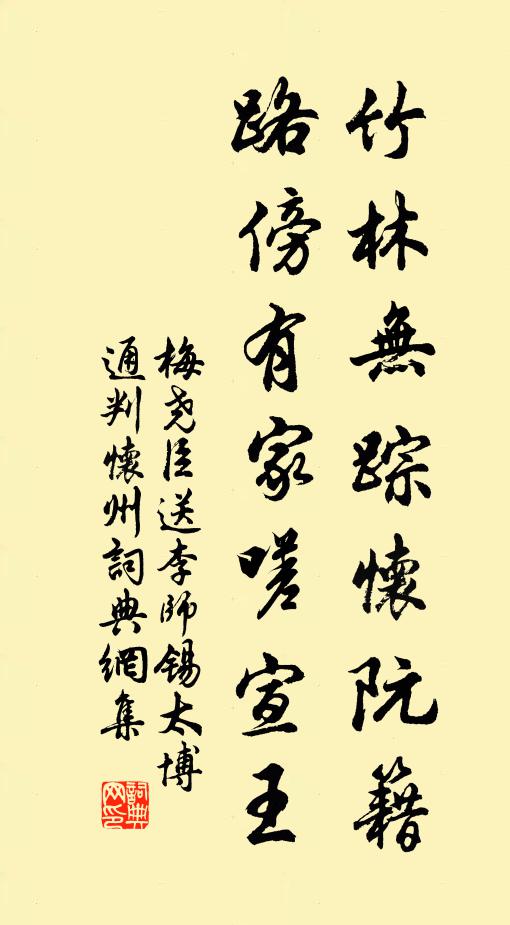 竹林無踪懷阮籍
路傍有家嗟宣王
梅尧臣送李师锡太博
通判懷州詞典網集
詞典网印